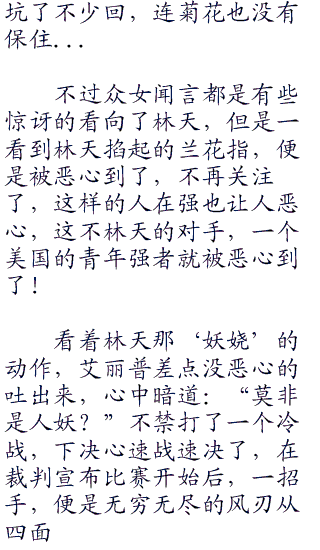 坑了不少回，连菊花也没有
保住...
不过众女闻言都是有些
惊讶的看向了林天，但是一
看到林天掐起的兰花指，便
是被恶心到了，不再关注
了，这样的人在强也让人恶
心，这不林天的对手，一个
美国的青年强者就被恶心到
了！
看着林天那‘妖娆’的
动作，艾丽普差点没恶心的
吐出来，心中暗道：“莫非
是人妖？”不禁打了一个冷
战，下决心速战速决了，在
裁判宣布比赛开始后，一招
手，便是无穷无尽的风刃从
四面